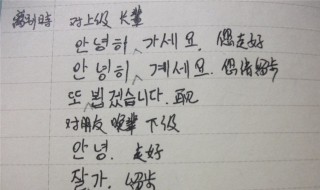 离别時 对上级 长辈
안녕히 가세요. 您走好
안녕히 계세요. 您请留步
또 뵙겠습니다. 再见
对朋友 晚辈 下级
안녕. 走好
잘 가. 留步